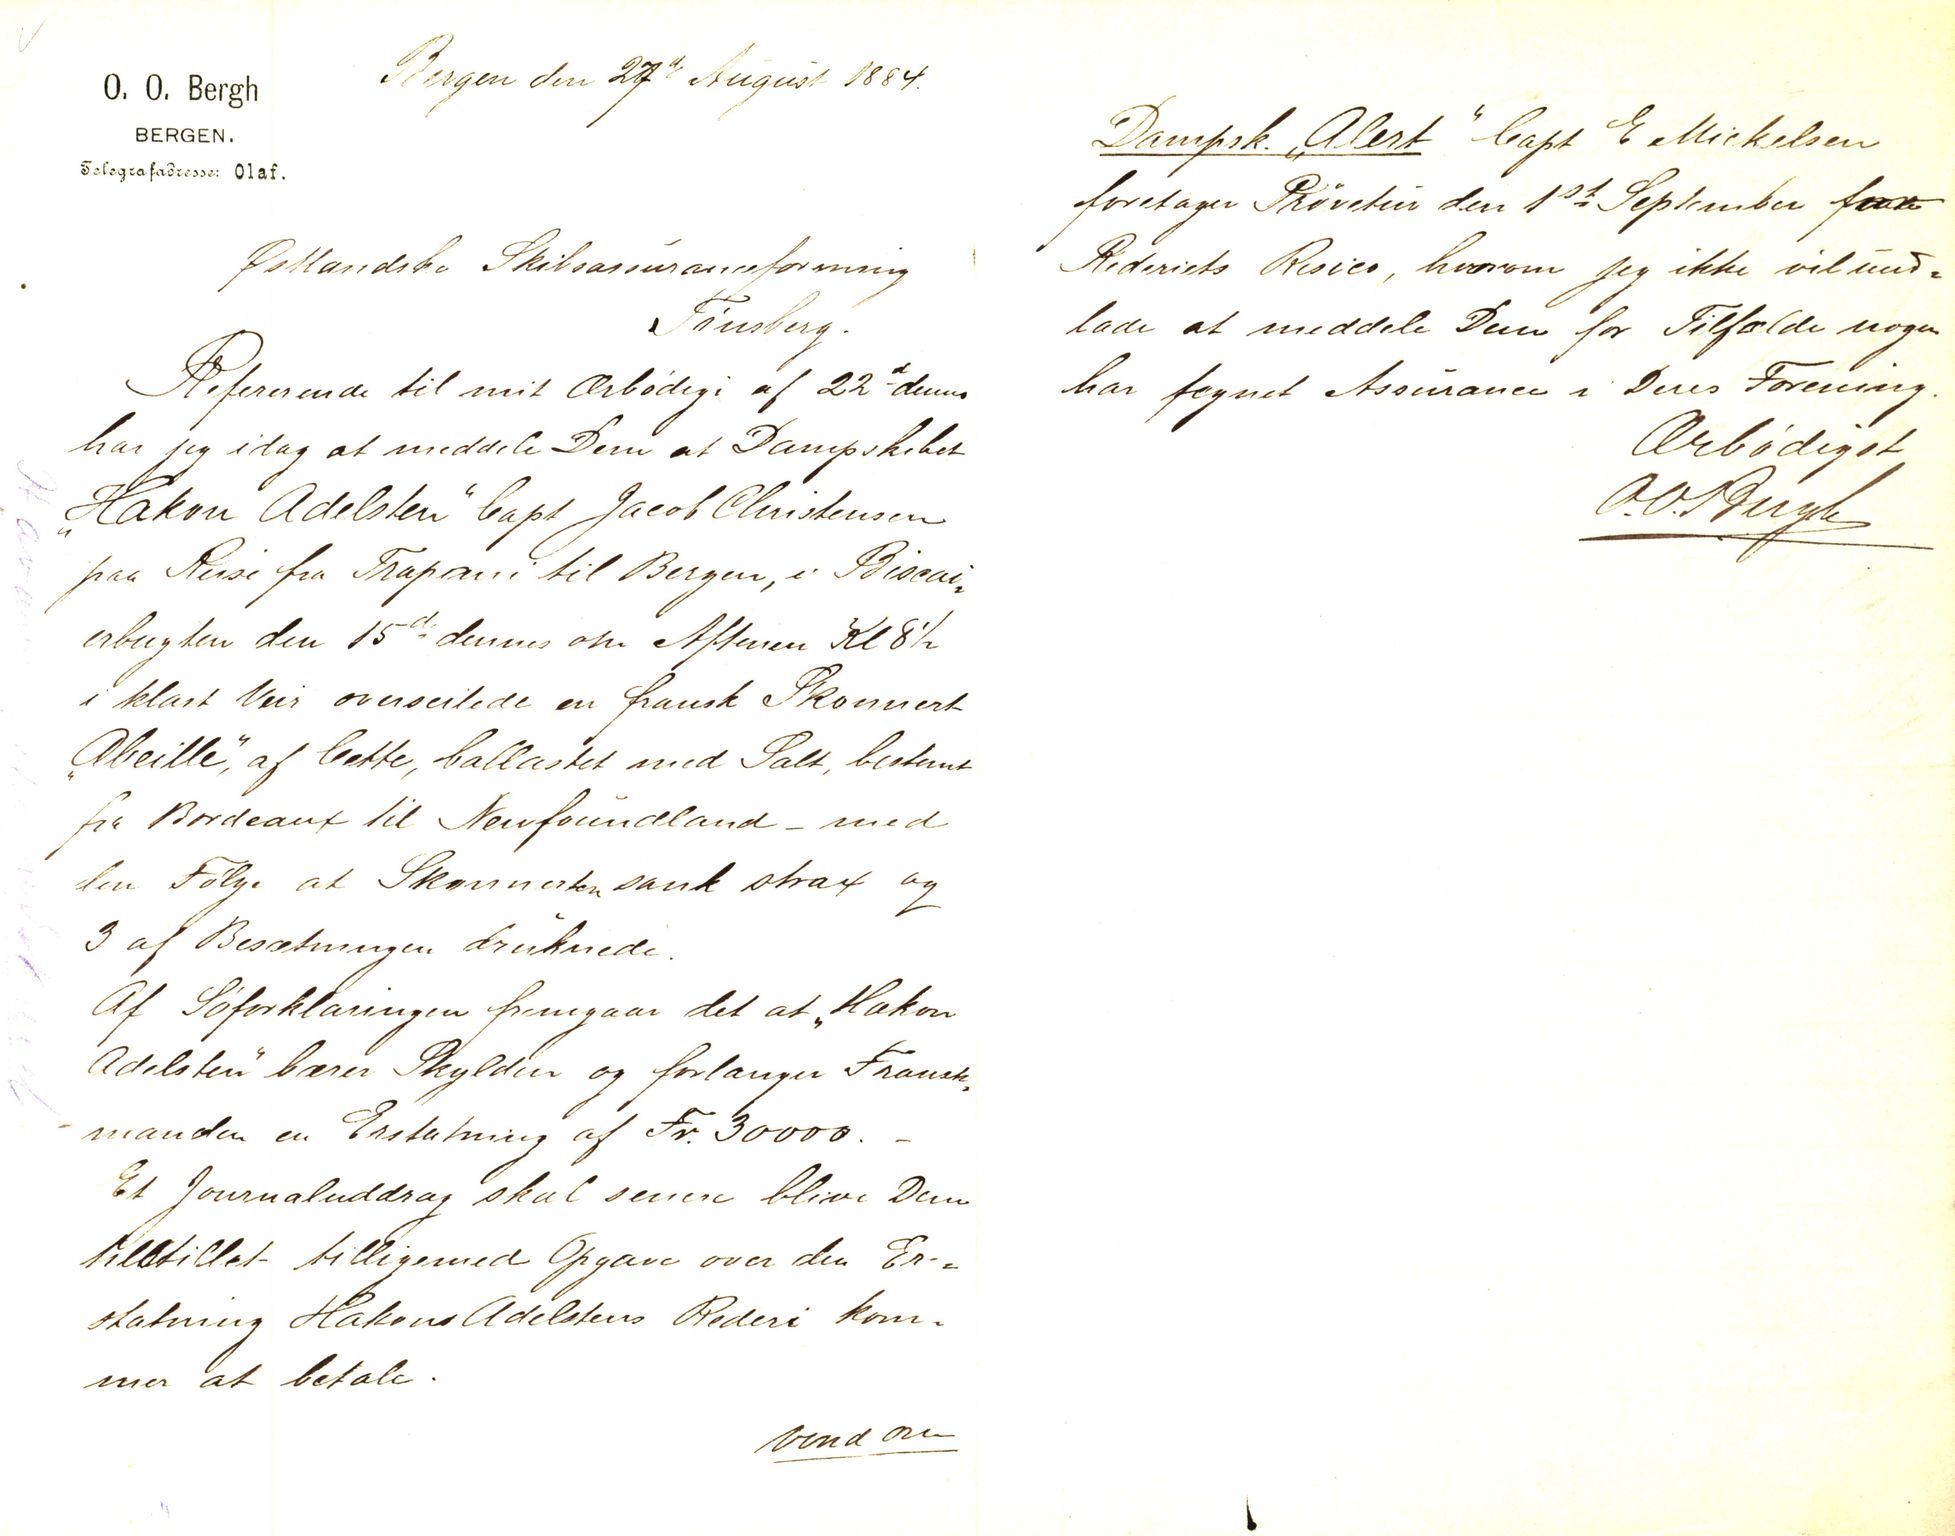 O. O. Bergh
BERGEN.
Telegrafadresse: Olaf.
Bergen den 27d August 1884.
Østlandske Skibsassuranceforening
Tönsberg.
Refererende til mit Ærbödige af 22d dennes
har jeg idag at meddele Dem at Dampskibet
„Hakon Adelsten“ Capt Jacob Christensen
paa Reise fra Trapani til Bergen, i Biscai-
erbugten den 15d dennes om Aftenen Kl 8½
i klart Veir overseilede en fransk Skonnert
„Abeille“, af Cette, ballastet med Salt, bestemt
fra Bordeaux til Newfoundland – med
den Fölge at Skonnerten sank strax og
3 af Besætningen druknede.
Af Söforklaringen fremgaar det at „Hakon
Adelsten“ bærer Skylden og forlanger Fransk-
manden en Erstatning af Fr. 30000. –
Et Journaluddrag skal senere blive Dem
tilstillet tilligemed Opgave over den Er-
statning Hakons Adelstens Rederi kom-
mer at betale.
Vend om
Dampsk. „Alert“ Capt E Mickelsen
foretager Prövetur den 1st September for
Rederiets Risico, hvorom jeg ikke vil und-
lade at meddele Dem for Tilfælde nogen
har tegnet Assurance i Deres Forening.
Ærbödigst
O.O. Bergh